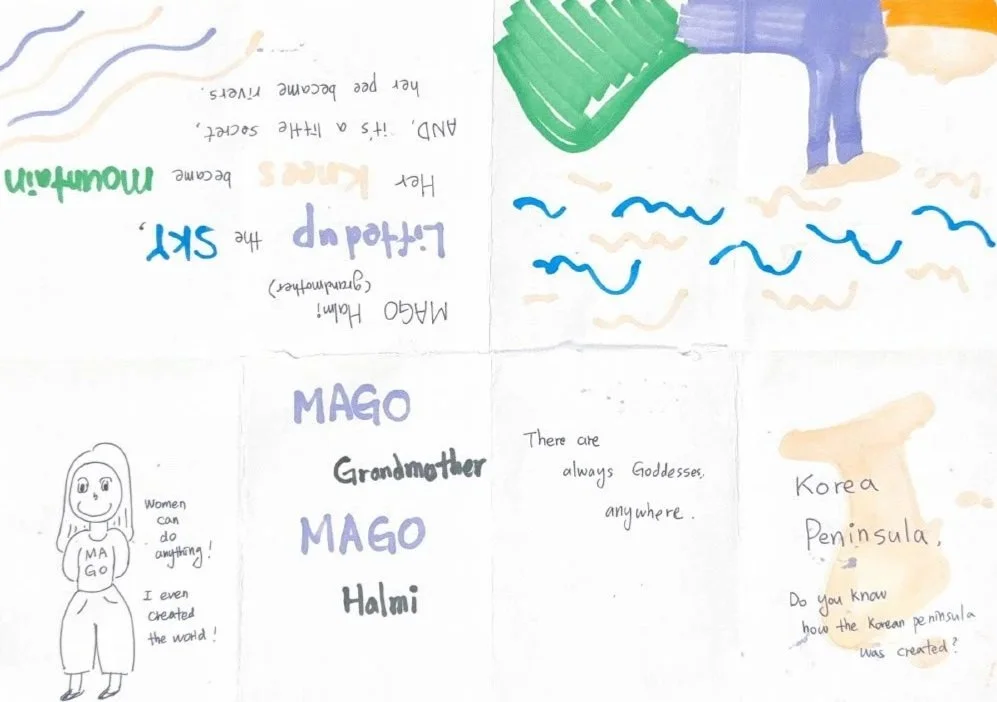 MAGO Halmi
(grandmother)
Lifted up the SKY,
Her Knees became mountain
AND, it's a little secret,
her pee became rivers.
Women
can
do
anything!
I even
created
the world!
MA
GO
MAGO
Grandmother
MAGO
Halmi
There are
always Goddesses,
anywhere.
Korea
Peninsula.
Do you know
how the Korean peninsula
was created?